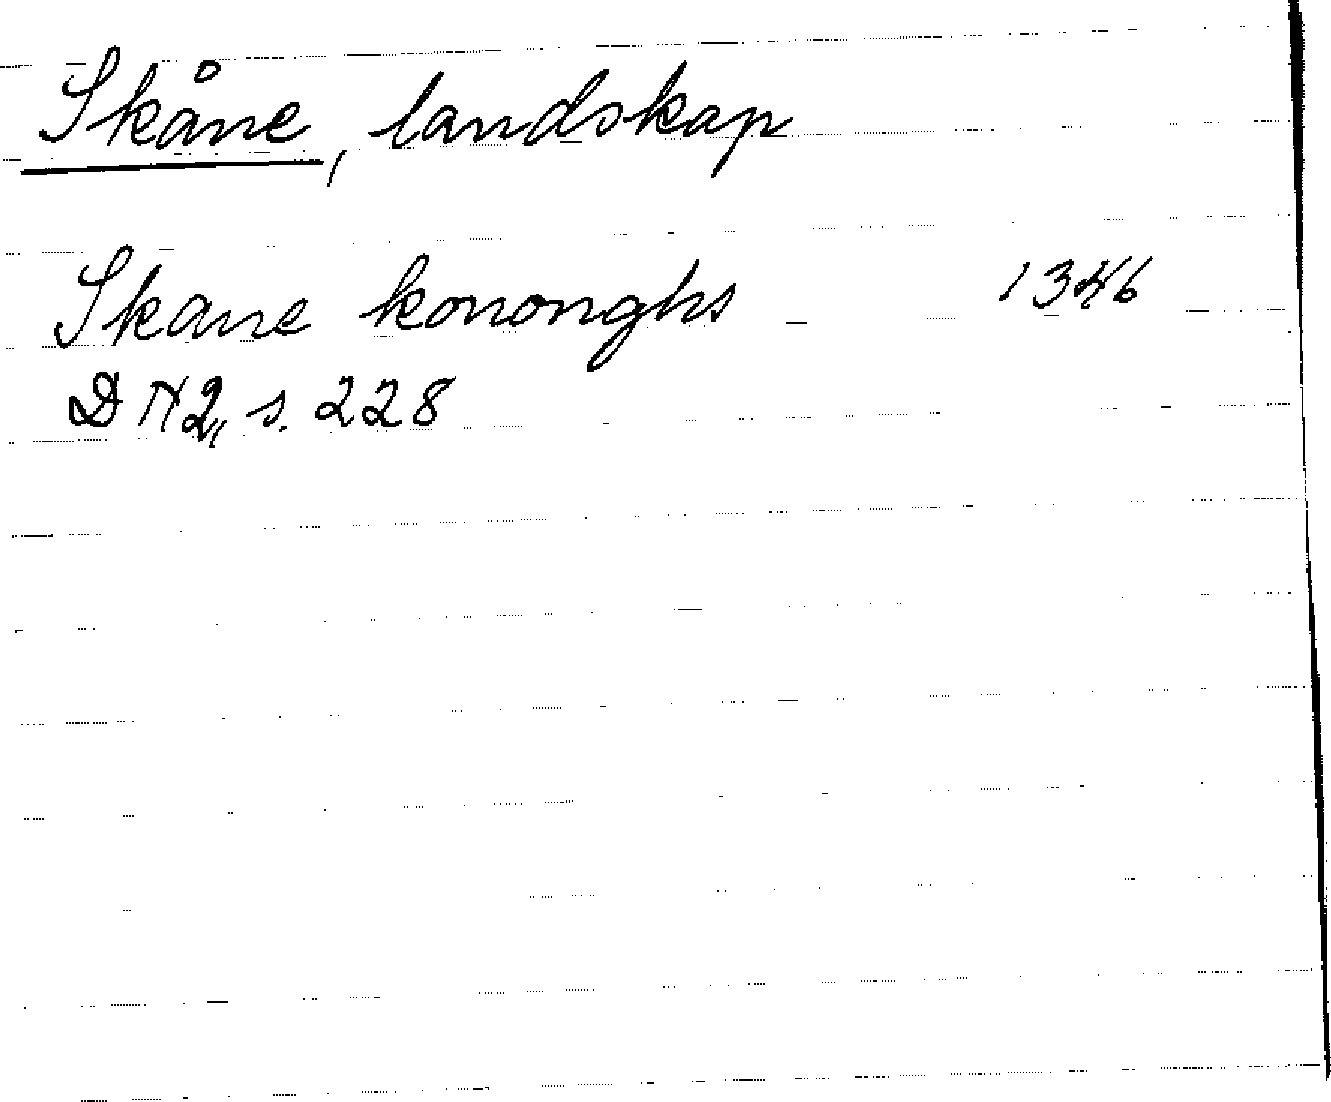 Skåne, landskap
Skane kononghs 1346
DN2, s. 228